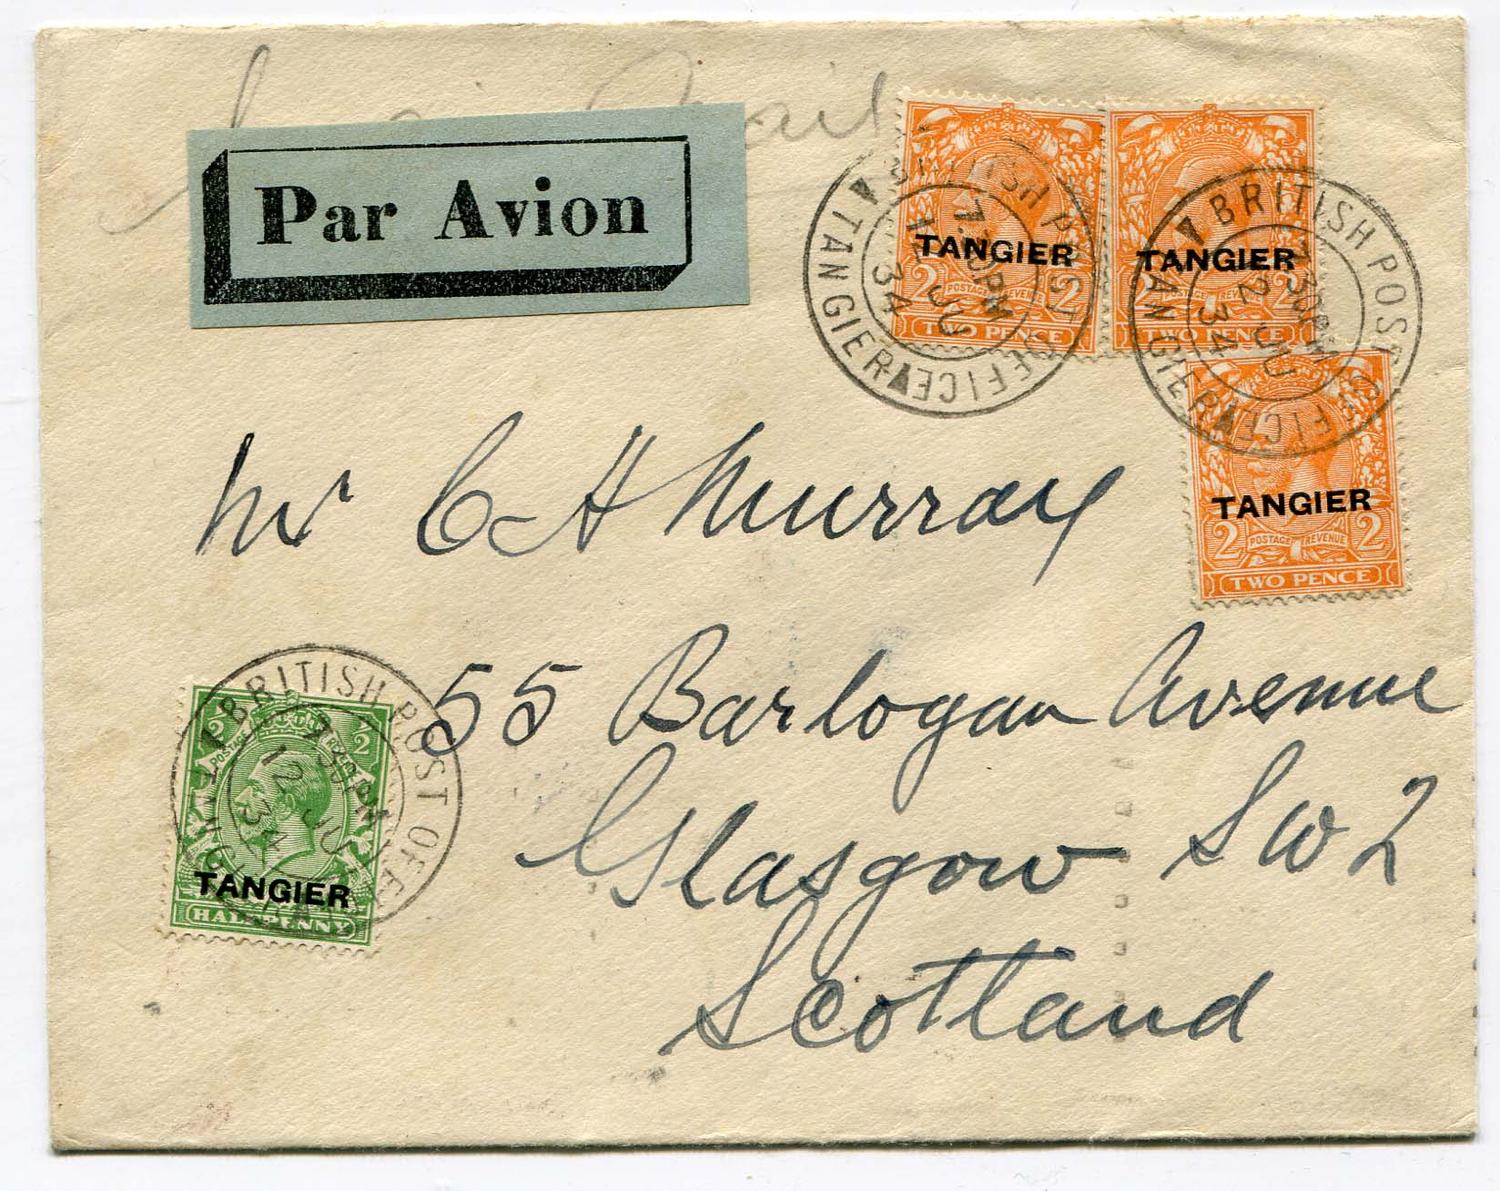 Air Mail
Par Avion
TANGIER
2 POSTAGE REVENUE 2
TWO PENCE
TANGIER
2 POSTAGE REVENUE 2
TWO PENCE
BRITISH POST OFFICE
TANGIER
7.30PM
12 JU
34
BRITISH POST OFFICE
TANGIER
7.30PM
12 JU
34
TANGIER
2 POSTAGE REVENUE 2
TWO PENCE
Mr C H Murray
55 Barlogan Avenue
Glasgow SW 2
Scotland
BRITISH POST OFFICE
TANGIER
7.30PM
12 JU
34
POSTAGE
TANGIER
HALFPENNY